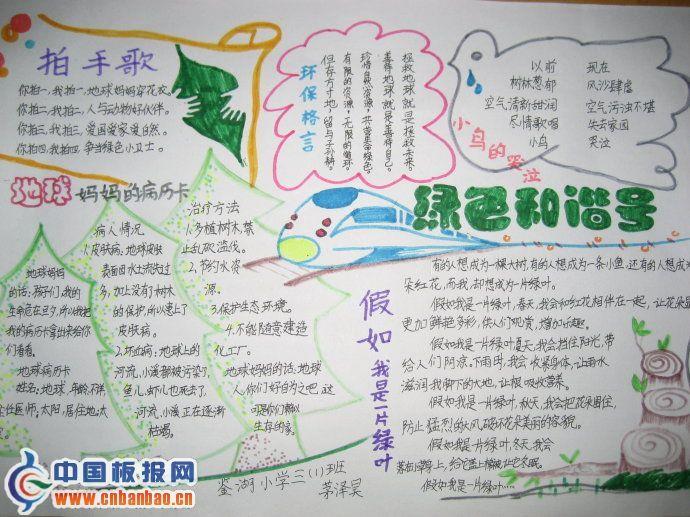 拍手歌
你拍一,我拍一,地球妈妈穿花衣。
你拍二,我拍二,人与动物好伙伴。
你拍三,我拍三,爱国爱家爱自然。
你拍四,我拍四,争当绿色小卫士。
环保格言
拯救地球就是拯救未来。
善待地球就是善待自己。
珍惜自然资源,共营生命绿色。
有限的资源,无限的循环。
但存方寸地,留与子孙耕。
小鸟的哭泣
以前
树林葱郁
空气清新甜润
尽情歌唱
小鸟
现在
风沙肆虐
空气污浊不堪
失去家园
哭泣
地球妈妈的病历卡
地球妈妈
的话:孩子们,我的
生命危在旦夕,所以我把
我的病历拿出来给你
们看看。
地球病历卡
姓名:地球,年龄:不详
主任医师:太阳,居住地:太
病人情况
1.皮肤病:地球皮肤
表面因水土流失过
多,加上没有了树木
的保护,所以患上了
皮肤病。
2.坏血病:地球上的
河流、小溪都被污染了,
鱼儿、虾儿也死去了,
河流、小溪正在逐渐
枯竭。
治疗方法
1.多植树木,禁
止乱砍滥伐。
2.节约水资
源。
3.保护生态环境。
4.不能随意建造
化工厂。
地球妈妈的话:地球
人你们好自为之吧,这
可是你们赖以
生存的家。
绿色和谐号
假如我是一片绿叶
有的人想成为一棵大树,有的人想成为一条小鱼,还有的人想
朵红花,而我,却想成为一片绿叶。
假如我是一片绿叶,春天,我会和红花相伴在一起,让花朵
更加鲜艳多彩,供人们观赏,增加乐趣。
假如我是一片绿叶,夏天,我会挡住阳光,带
给人们阴凉。下雨时,我会收集身体,让雨水
滋润我脚下的大地,让根吸收营养。
假如我是一片绿叶,秋天,我会把花朵围住,
防止猛烈的大风破坏花朵美丽的容貌。
假如我是一片绿叶,冬天,我会
假如我是一片绿叶……
鉴湖小学三(1)班
茅泽昊
中国板报网
www.cnbanbao.cn